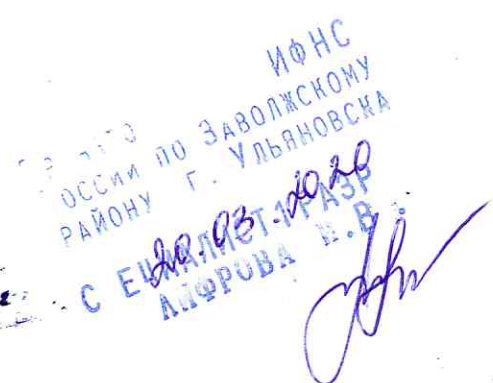 ИФНС
РОССИИ ПО ЗАВОЛЖСКОМУ
РАЙОНУ Г. УЛЬЯНОВСКА
20.03.2020
СПЕЦИАЛИСТ 1 РАЗР